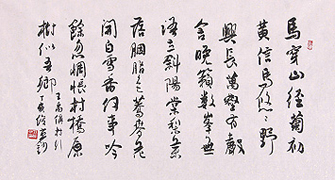 馬穿山徑菊初
黄信馬悠々野
興長萬壑有聲
含晚籟數峯無
語立斜陽棠梨葉
落胭脂色蕎麥花
開白雪香何事吟
餘忽惆悵村橋原
樹似吾鄉 王禹偁村行